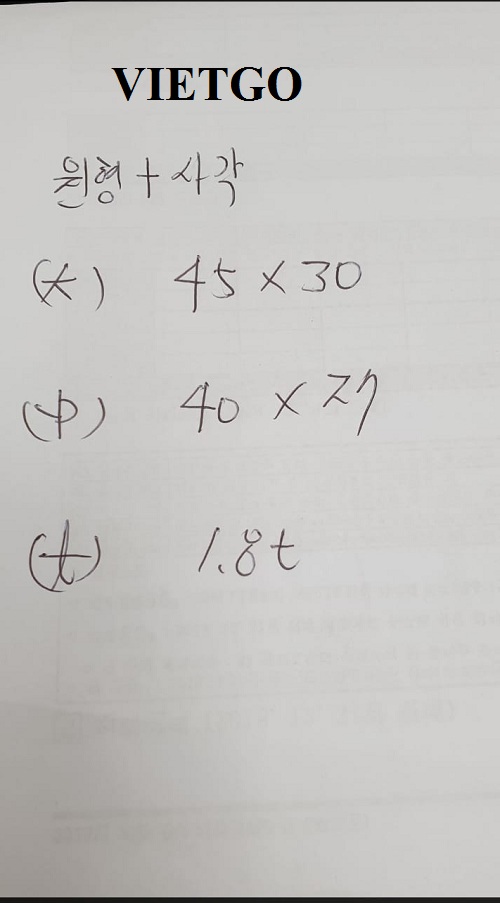 VIETGO
원형 + 사각
(大) 45 × 30
(中) 40 × 27
(t) 1.8t